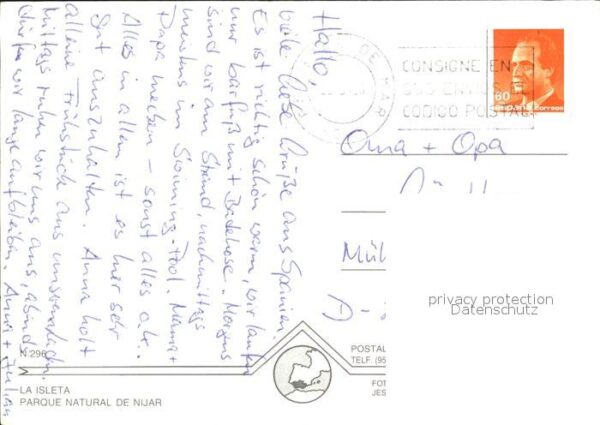 Hallo,
viele liebe Grüße aus Spanien.
Es ist richtig schön warm, wir laufen
nur barfuß mit Badehose. Morgens
sind wir am Strand, nachmittags
meistens im Swimming-Pool. Mama +
Papa – sonst alles o.k.
Alles in allem ist es hier sehr
gut auszuhalten. Anna holt
alleine Frühstück aus
Mittags ruhen wir uns aus, abends
dürfen wir lange aufbleiben. Anna + Julian
DE MAR
CONSIGNE EN
CODIGO POSTAL
60
España correos
Oma + Opa
Mül
privacy protection
Datenschutz
N.º 296
LA ISLETA
PARQUE NATURAL DE NIJAR
POSTAL
TELF. (95
FOT
JES